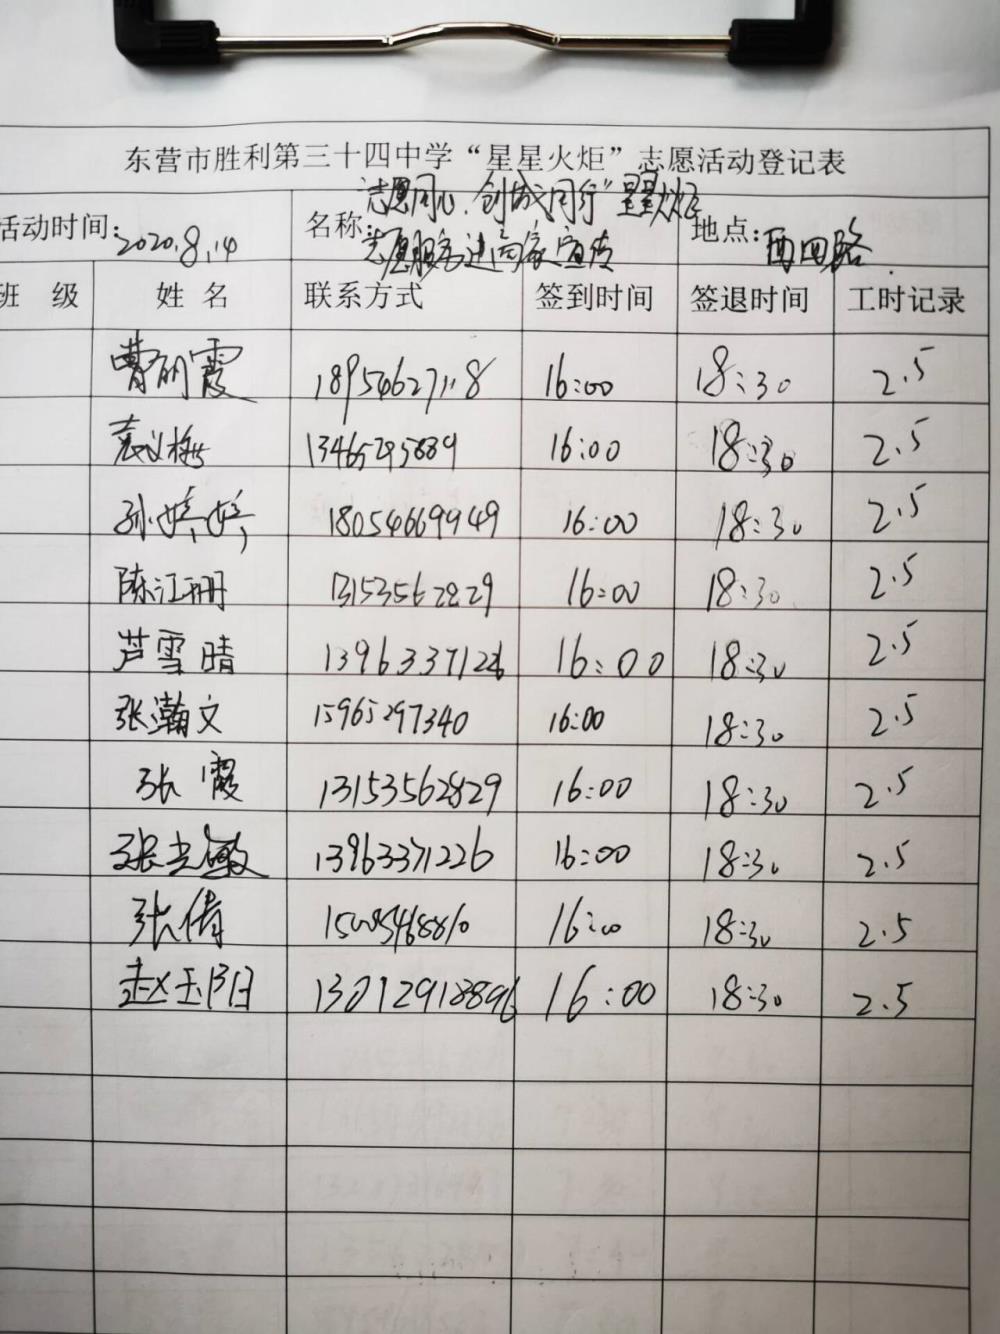 东营市胜利第三十四中学“星星火炬”志愿活动登记表
活动时间:2020.8.14 名称:志愿同心.创城同行“星星火炬 志愿服务进商家宣传 地点:西四路.
班 级 姓 名 联系方式 签到时间 签退时间 工时记录
曹丽霞 18954627118 16:00 18:30 2.5
袁义梅 13465295889 16:00 18:30 2.5
孙婷婷 18054669949 16:00 18:30 2.5
陈江珊 13153562829 16:00 18:30 2.5
芦雪晴 13963371226 16:00 18:30 2.5
张瀚文 15965297340 16:00 18:30 2.5
张霞 13153562829 16:00 18:30 2.5
张光敏 13963371226 16:00 18:30 2.5
张倩 16:00 18:30 2.5
赵玉阳 16:00 18:30 2.5